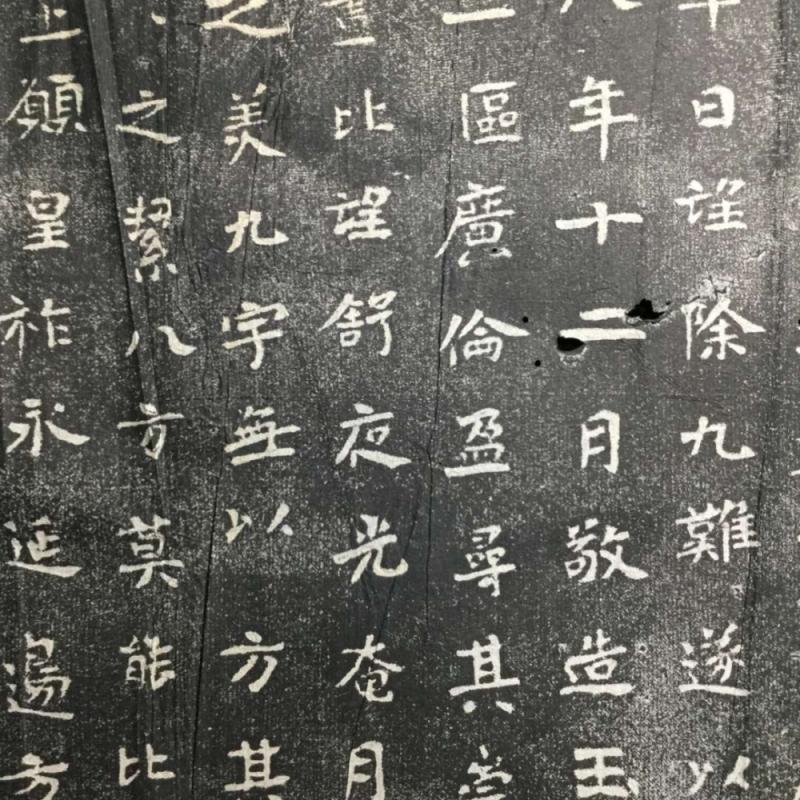 日望除九難遂以
年十二月敬造玉
一區廣倫盈尋其
比望舒夜光奄月
之美九字無以方其
之潔八方莫能比
上願皇祚永延邊方